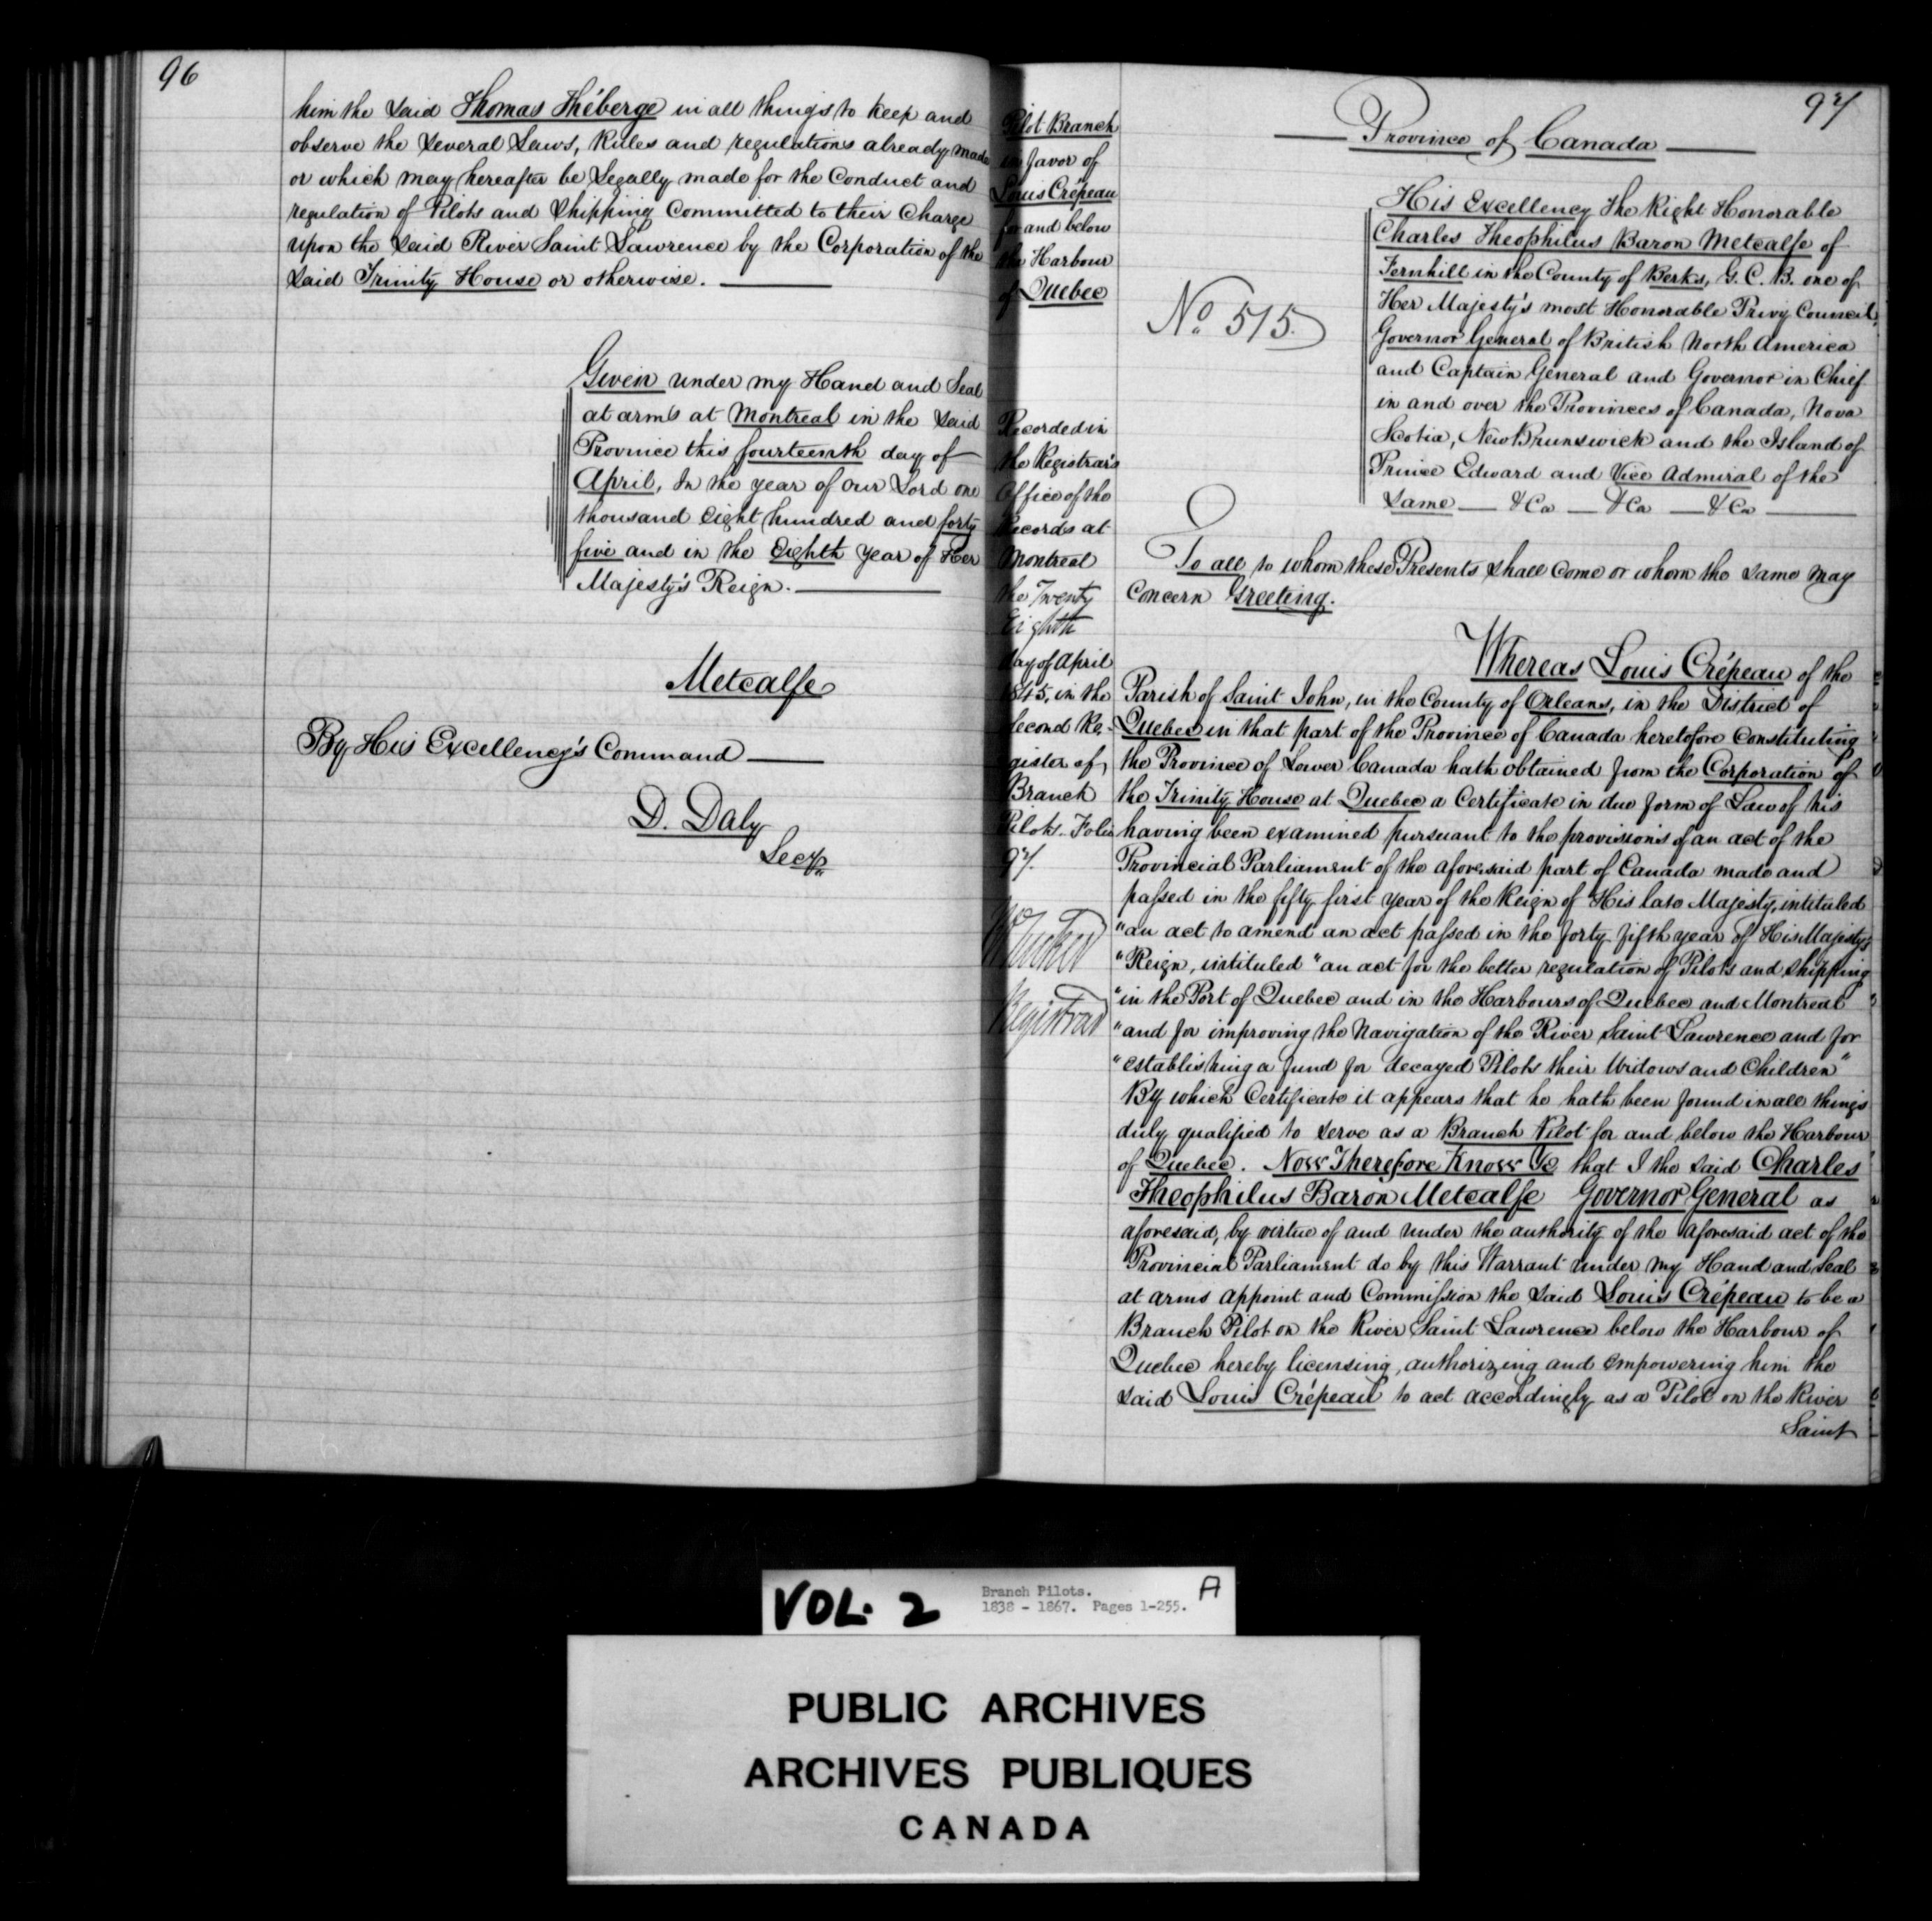 96
him the said Thomas Théberge in all things to keep and
observe the several Laws, Rules and regulations already made
or which may hereafter be Legally made for the Conduct and
regulation of Pilots and Shipping Committed to their Charge
upon the said River Saint Lawrence by the Corporation of the
said Trinity House or otherwise.
Given under my Hand and Seal
at arms at Montreal in the said
Province this fourteenth day of
April, In the year of our Lord one
thousand Eight hundred and forty
five and in the Eighth year of Her
Majesty's Reign.
Metcalfe
By His Excellency's Command
D. Daly
Secy.
Pilot Branch
in favor of
Louis Crépeau
for and below
the Harbour
of Quebec
Recorded in
the Registrar's
Office of the
Records at
Montreal
the Twenty
Eighth
day of April
1845, in the
Second Re-
gister of
Branch
Pilots. Folio
97.
Tucker
Registrar
97
Province of Canada
No. 515.
His Excellency The Right Honorable
Charles Theophilus Baron Metcalfe of
Fernhill in the County of Berks, G. C. B. one of
Her Majesty's most Honorable Privy Council,
Governor General of British North America
and Captain General and Governor in Chief
in and over the Provinces of Canada, Nova
Scotia, New Brunswick and the Island of
Prince Edward and Vice Admiral of the
Same — &Ca — &Ca — &Ca
To all to whom these Presents shall Come or whom the same may
Concern Greeting.
Whereas Louis Crépeau of the
Parish of Saint John, in the County of Orleans, in the District of
Quebec in that part of the Province of Canada heretofore Constituting
the Province of Lower Canada hath obtained from the Corporation of
the Trinity House at Quebec a Certificate in due form of Law of his
having been examined pursuant to the provisions of an act of the
Provincial Parliament of the aforesaid part of Canada made and
passed in the fifty first year of the Reign of His late Majesty, intituled
"an act to amend an act passed in the forty fifth year of His Majesty's
"Reign, intituled "an act for the better regulation of Pilots and Shipping
"in the Port of Quebec and in the Harbours of Quebec and Montreal
"and for improving the Navigation of the River Saint Lawrence and for
"establishing a fund for decayed Pilots their Widows and Children"
By which Certificate it appears that he hath been found in all things
duly qualified to serve as a Branch Pilot for and below the Harbour
of Quebec. Now Therefore Know Ye that I the said Charles
Theophilus Baron Metcalfe Governor General as
aforesaid, by virtue of and under the authority of the aforesaid act of the
Provincial Parliament do by this Warrant under my Hand and Seal
at arms appoint and Commission the said Louis Crépeau to be a
Branch Pilot on the River Saint Lawrence below the Harbour of
Quebec hereby licensing, authorizing and empowering him the
said Louis Crépeau to act accordingly as a Pilot on the River
Saint
VOL. 2
Branch Pilots.
1838 - 1867. Pages 1-255.
A
PUBLIC ARCHIVES
ARCHIVES PUBLIQUES
CANADA